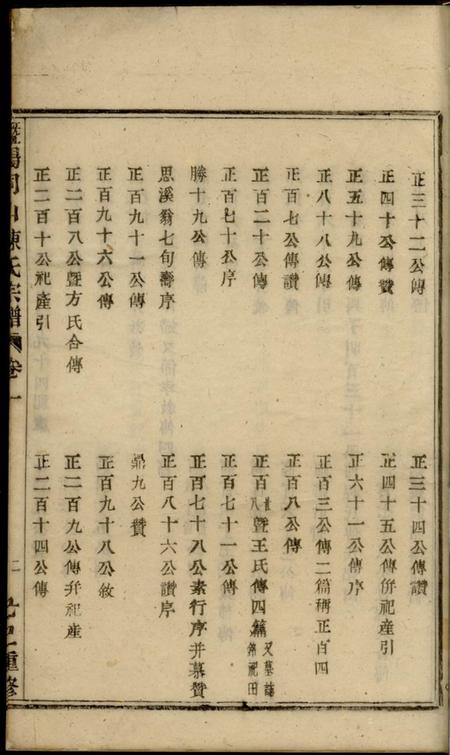 正三十二公傳
正三十四公傳讚
正四十公傳贊
正四十五公傳併祀產引
正五十九公傳
正六十一公傳序
正八十八公傳
正百三公傳二篇稱正百四
正百七公傳讚
正百八公傳
正百二十公傳
正百廿八暨王氏傳四篇又墓誌銘祀田
正百七十公序
正百七十一公傳
勝十九公傳
正百七十八公素行序并墓贊
思溪翁七旬壽序
正百八十六公讚序
正百九十一公傳
鼎九公贊
正百九十六公傳
正百九十八公敘
正二百八公暨方氏合傳
正二百九公傳并祀產
正二百十公祀產引
正二百十四公傳
暨陽 山陳氏宗譜 卷一 二 重修